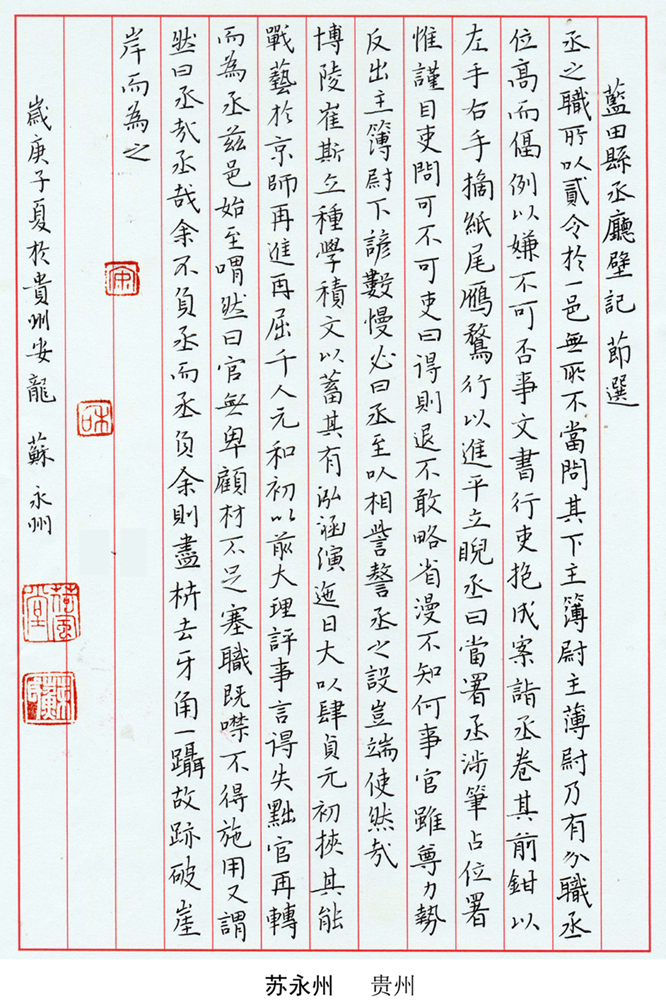 藍田縣丞廳壁記 節選
丞之職所以貳令於一邑無所不當問其下主簿尉主薄尉乃有分職丞
位高而偪例以嫌不可否事文書行吏抱成案詣丞卷其前鉗以
左手右手摘紙尾鴈鶩行以進平立睨丞曰當署丞涉筆占位署
惟謹目吏問可不可吏曰得則退不敢略省漫不知何事官雖尊力勢
反出主簿尉下諺數慢必曰丞至以相訾謷丞之設豈端使然哉
博陵崔斯立種學積文以蓄其有泓涵演迤日大以肆貞元初挾其能
戰藝於京師再進再屈千人元和初以前大理評事言得失黜官再轉
而為丞茲邑始至喟然曰官無卑顧材不足塞職既噤不得施用又謂
然曰丞哉丞哉余不負丞而丞負余則盡枿去牙角一躡故跡破崖
岸而為之
歲庚子夏於貴州安龍 蘇永州
苏永州 贵州